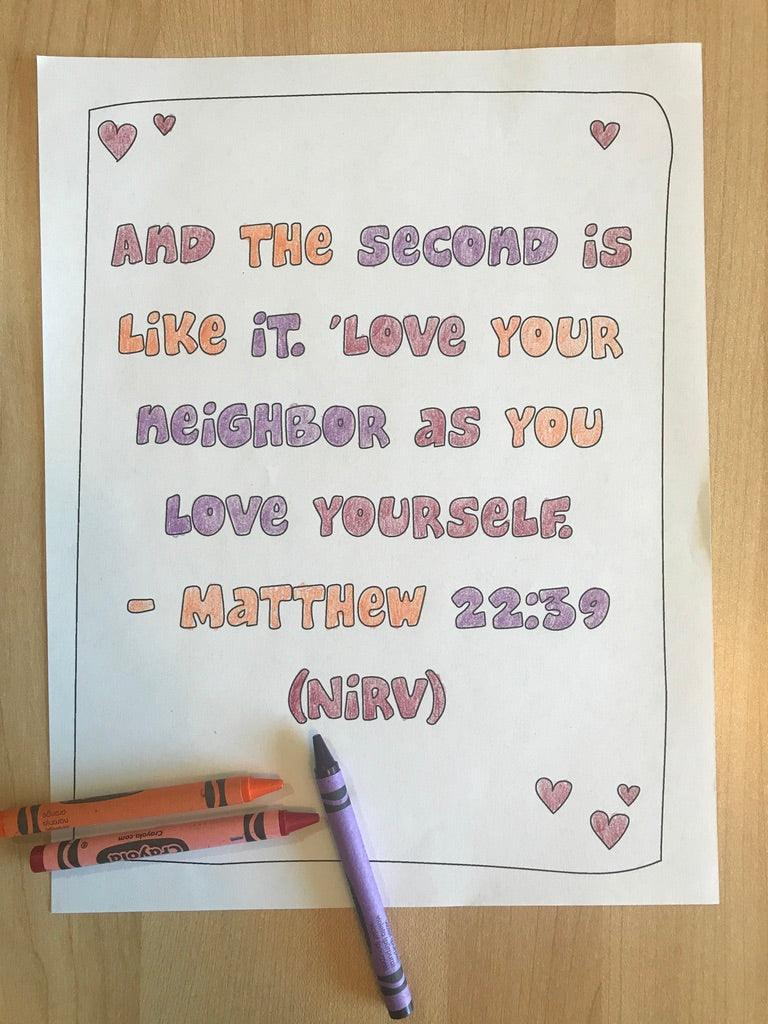 AND THE SECOND IS
LIKE IT. 'LOVE YOUR
NEIGHBOR AS YOU
LOVE YOURSELF.
- MATTHEW 22:39
(NIRV)
orange
naranja
Crayola.com
Crayola